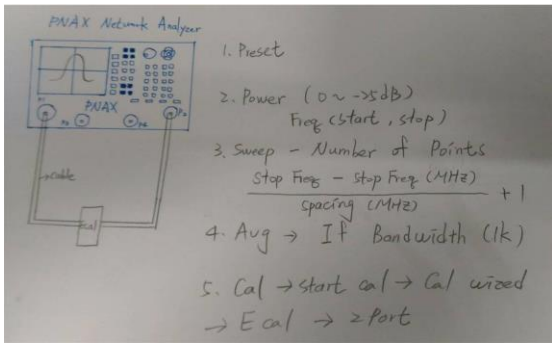 PNAX Network Analyzer
PNAX
cable
Ecal
1. Preset
2. Power (0 ~ -25dB)
Freq (start, stop)
3. Sweep - Number of Points
Stop Freq - Stop Freq (MHz)
spacing (MHz)
+ 1
4. Avg → If Bandwidth (1k)
5. Cal → start cal → Cal wized
→ E cal → 2 Port